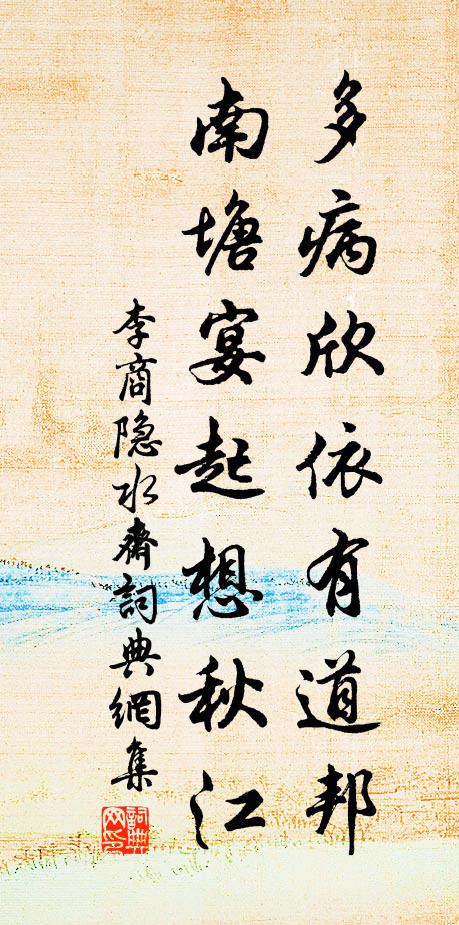 多病欣依有道邦
南塘宴起想秋江
李商隐水齋詞典網集
詞典网印